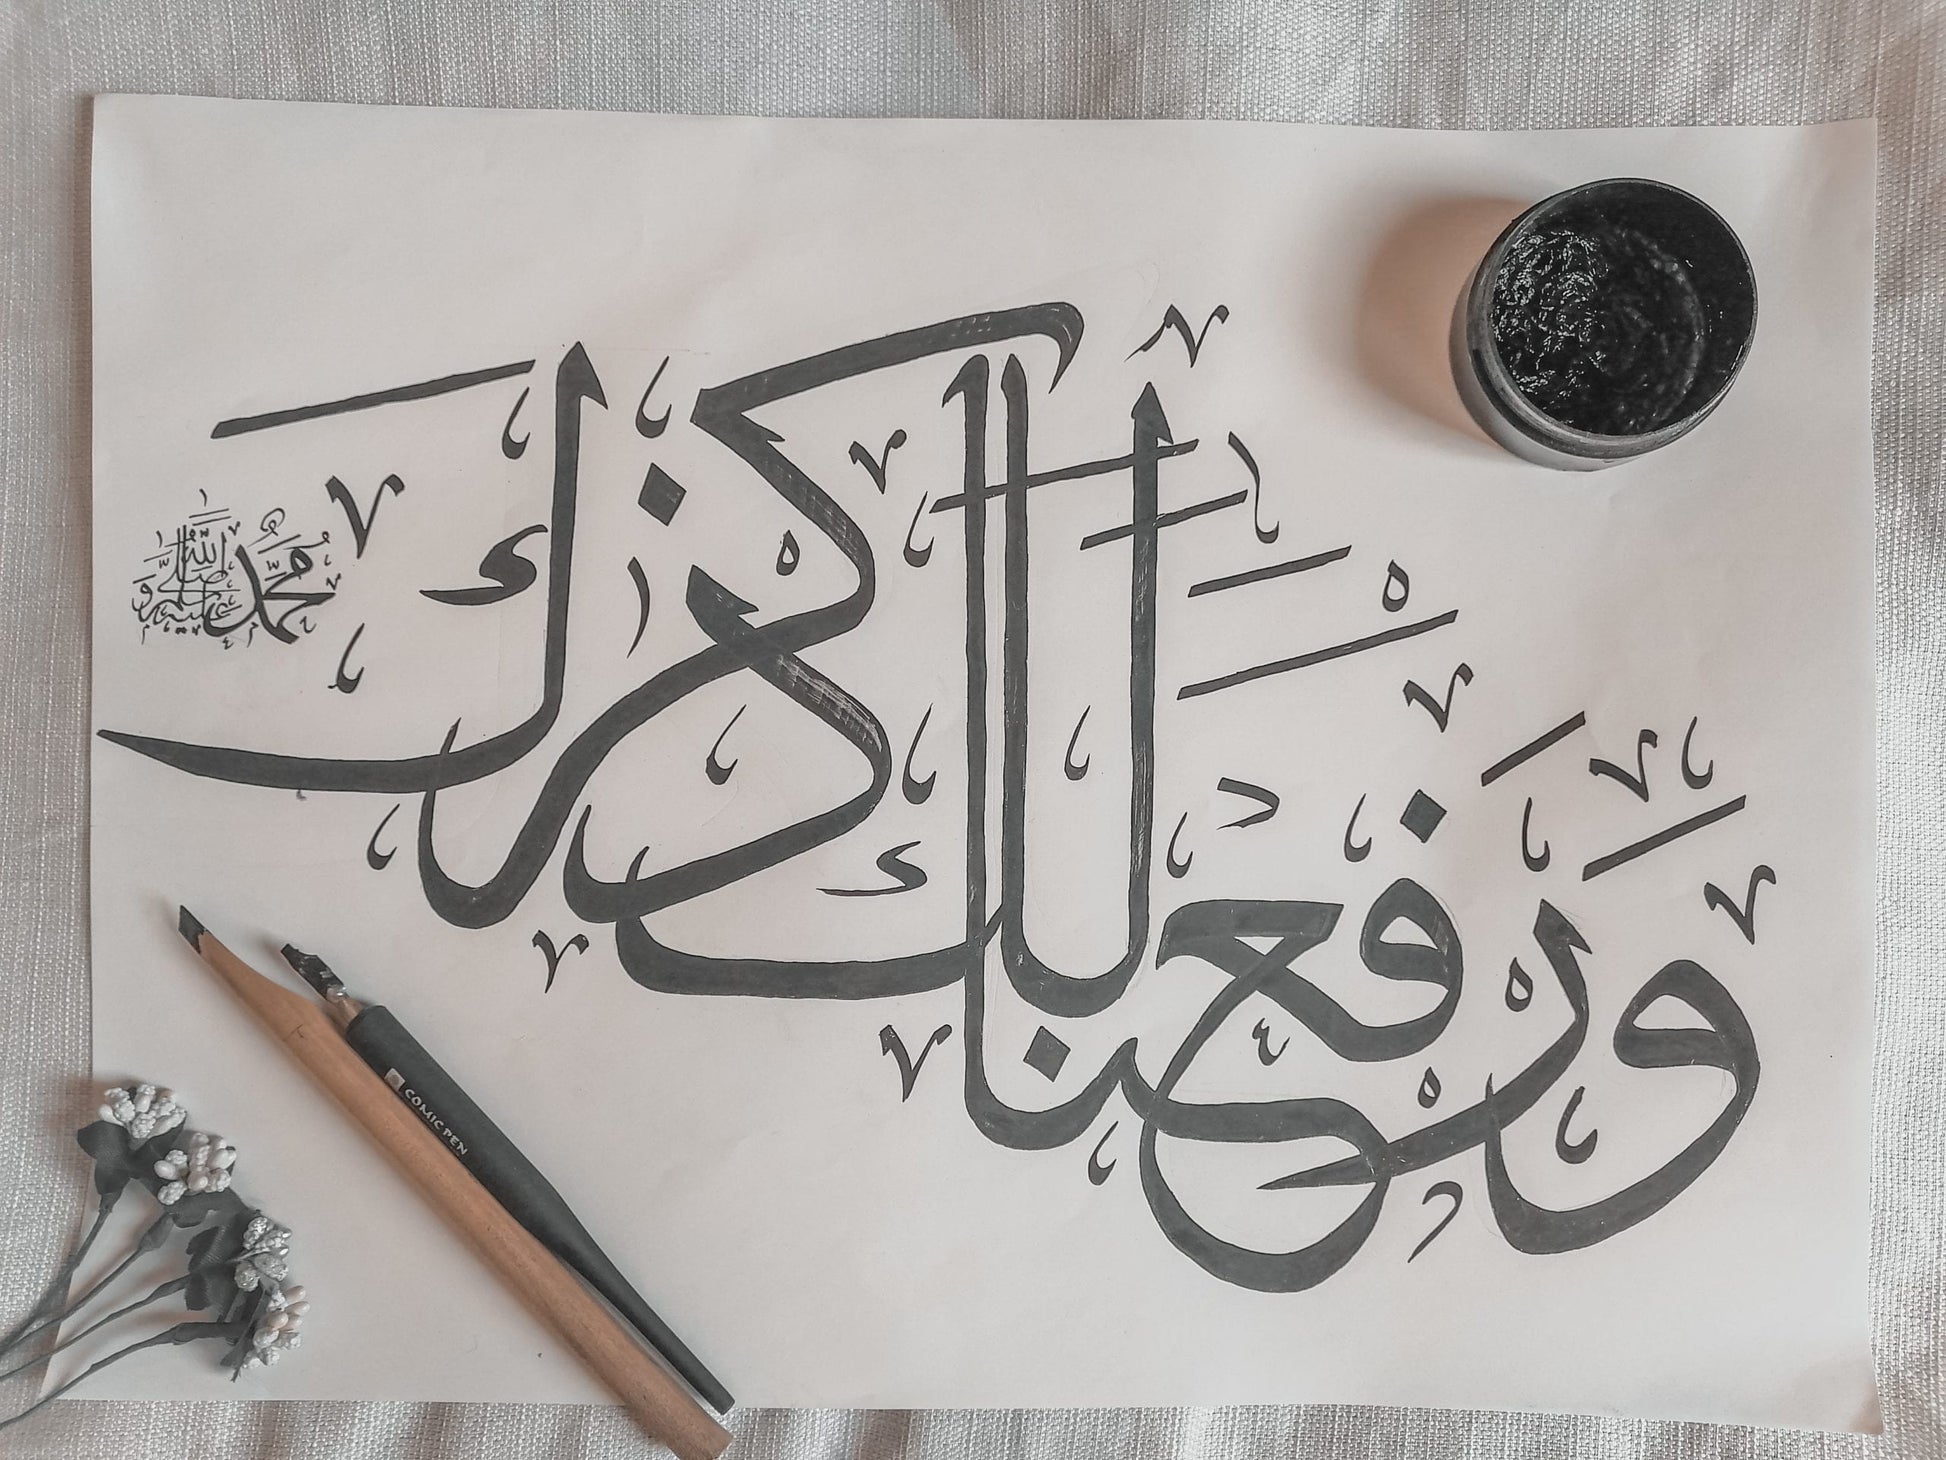 ورفعنا لك ذكرك
محمد صلى الله عليه وسلم
COMIC PEN